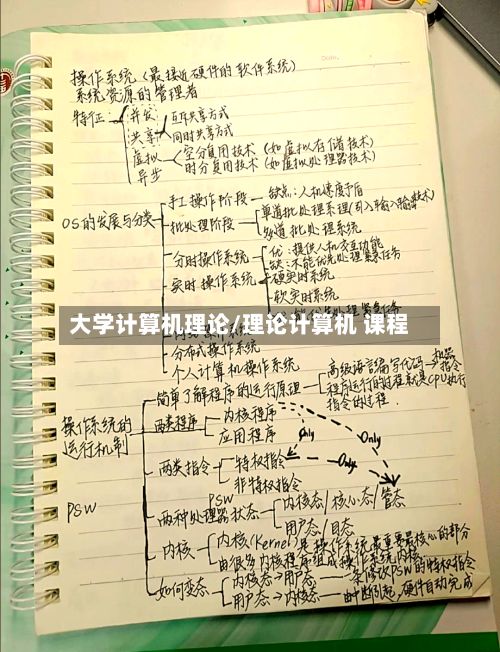 操作系统(最接近硬件的软件系统)
系统资源的管理者
特征: 并发 互斥共享方式
共享 同时共享方式
虚拟 空分复用技术(如虚拟存储技术)
异步 时分复用技术(如虚拟处理器技术)
手工操作阶段 — 缺点:人机速度
OS的发展与分类 批处理阶段 单道批处理系统(引入输入输出技术)
多道批处理系统
分时操作系统 优:提供人机交互功能
缺:不能优先处理紧急任务
实时操作系统 硬实时系统
软实时系统
大学计算机理论/理论计算机 课程
分布式操作系统
个人计算机操作系统
简单了解程序的运行原理 高级语言编写代码→机器指令
程序运行的过程就是CPU执行
指令的过程.
操作系统的
运行机制
两类程序 内核程序
应用程序
Only
Only
两类指令 特权指令 Only
非特权指令
PSW
PSW
两种处理器状态 内核态/核心态/管态
用户态/目态
内核 内核(Kernel)是操作系统最重要最核心的部分
由很多内核程序组成操作系统内核
如何变态 内核态→用户态 — 一条修改PSW的特权指令
用户态→内核态 — 由中断引起,硬件自动完成